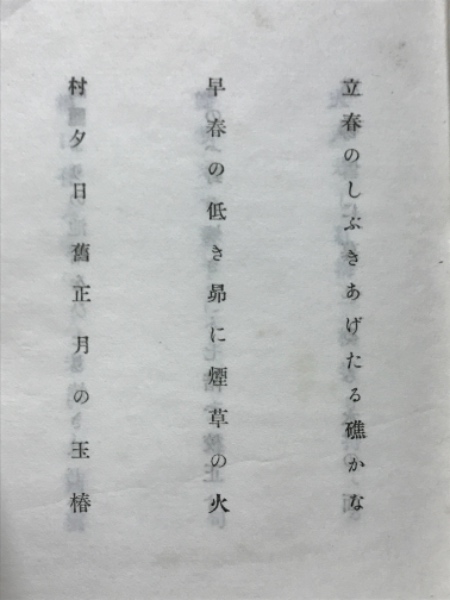 立春のしぶきあげたる礁かな
早春の低き昴に煙草の火
村夕日舊正月の玉椿